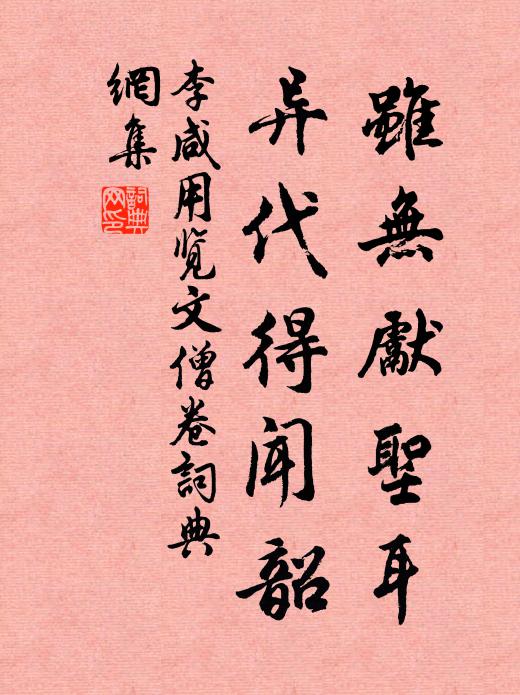 雖無獻聖耳
异代得闻韶
李咸用览文僧卷詞典
網集
詞典
网印